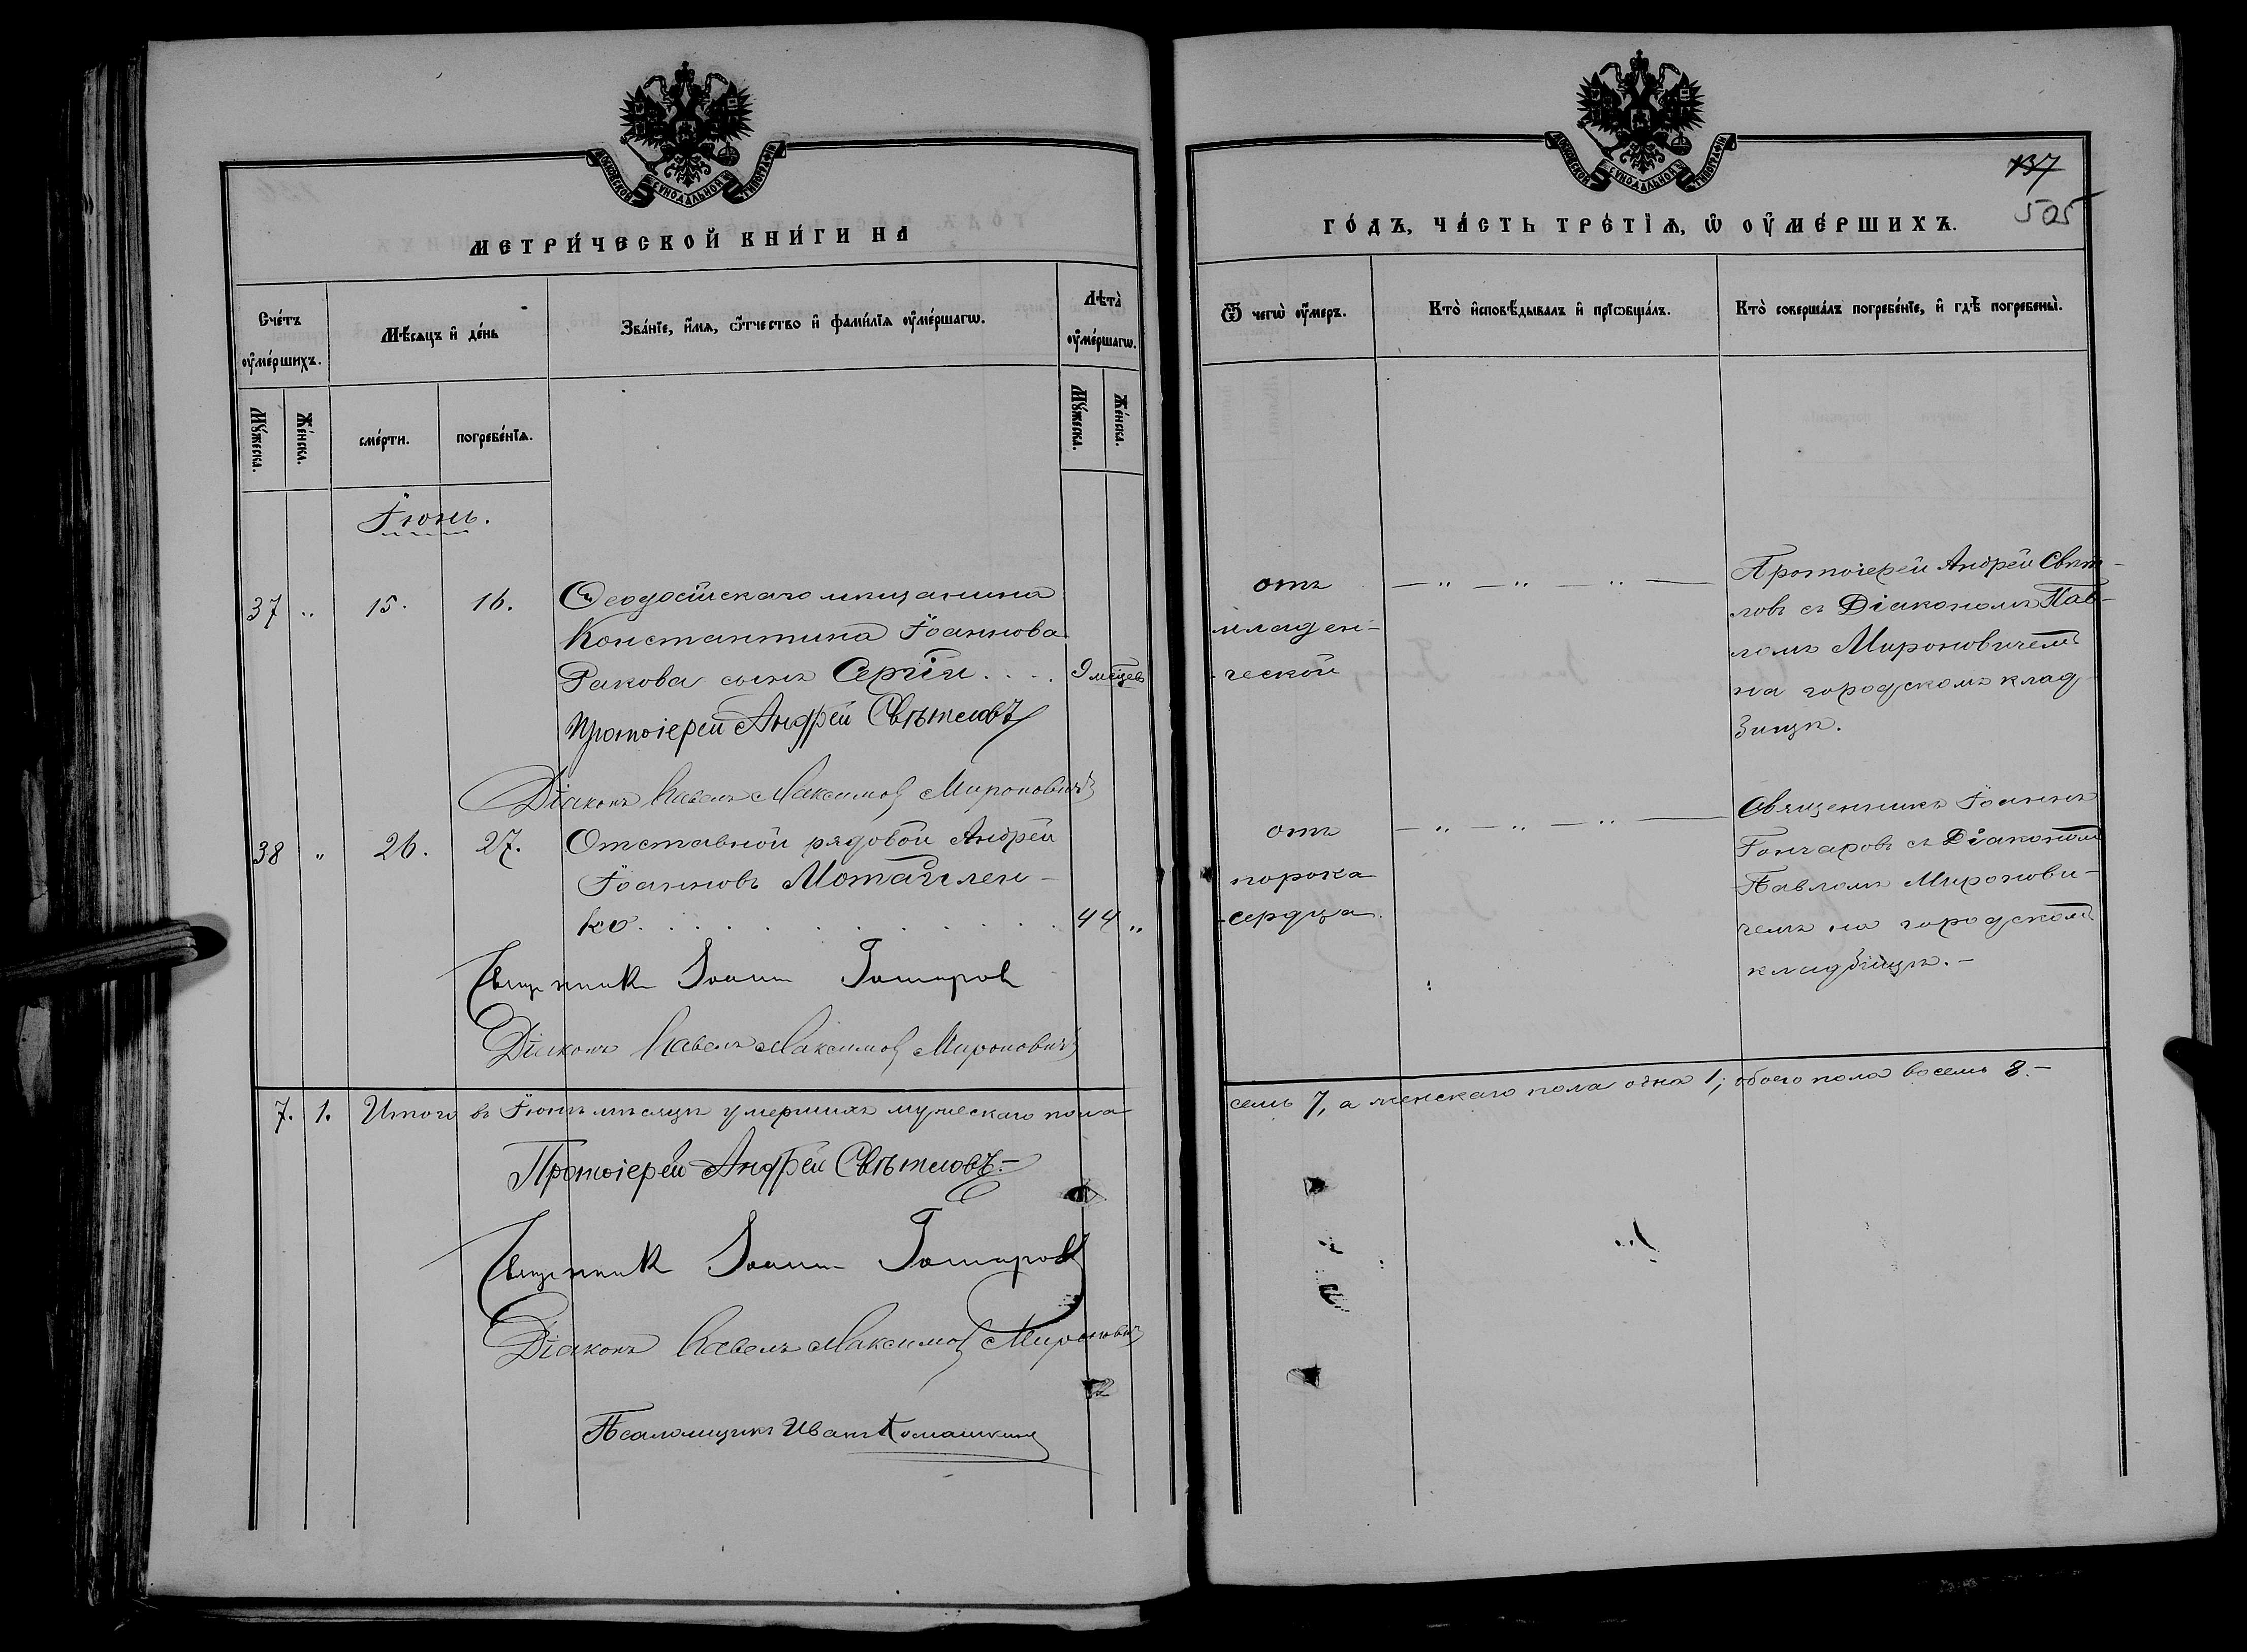 МОСКОВСКОЙ СУНОДАЛЬНОЙ ТИПОГРАФІИ
МЕТРИ́ЧЕСКОЙ КНИ́ГИ НА
Сче́тъ ᲂу҆ме́ршихъ.
Мѣ́сяцъ и҆ де́нь
Зва́нїе, и҆́мѧ, ѻ҆́тчество и҆ фами́лїѧ ᲂу҆ме́ршагѡ.
Лѣта̀ ᲂу҆ме́ршагѡ.
Мꙋ́жеска.
Же́нска.
сме́рти.
погребе́нїѧ.
Мꙋ́жеска.
Же́нска.
Іюнь.
37 " 15. 16. Ѳеодосійскаго мѣщанина
Константина Іоаннова
Ракова сынъ Сергій.... 9 мѣсцев
Протоіерей Андрей Свѣтловъ
Діаконъ Павелъ Максимов Мироновичъ
38 " 26. 27. Отставной рядовой Андрей
Іоанновъ
ко. 44 "
Священник Іоанн Гончаров
Діаконъ Павелъ Максимов Мироновичъ
7. 1. Итого въ Іюнѣ мѣсяцѣ умершихъ мужескаго пола
Протоіерей Андрей Свѣтловъ.
Священник Іоанн Гончаров
Діаконъ Павелъ Максимов Мироновичъ
Псаломщикъ Иванъ
МОСКОВСКОЙ СУНОДАЛЬНОЙ ТИПОГРАФІИ
137
505
ГО́ДЪ, ЧА́СТЬ ТРЕ́ТЇѦ, Ѡ҆ ОУ҆МЕ́РШИХЪ.
Ѿ чегѡ̀ ᲂу҆́меръ.
Кто̀ и҆сповѣ́дывалъ и҆ прїѡбща́лъ.
Кто̀ соверша́лъ погребе́нїе, и҆ гдѣ̀ погребены̀.
отъ
младен-
ческой
— " — " — " —
Протоіерей Андрей Свѣт-
ловъ съ Діакономъ Пав-
ломъ Мироновичемъ
на городскомъ клад
бищѣ.
отъ
порока
сердца.
— " — " — " —
Священникъ Іоаннъ
Гончаровъ съ Діакономъ
Павломъ Миронови-
чемъ на городскомъ
кладбищѣ.-
семь 7, а женскаго пола одна 1; обоего пола восемь 8.-